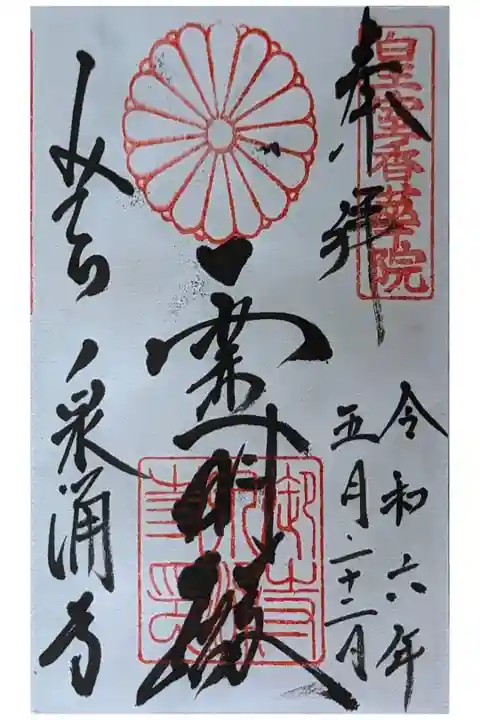 皇室香華院
奉拝
令和六年
五月二十二日
霊明殿
みてら 泉涌寺